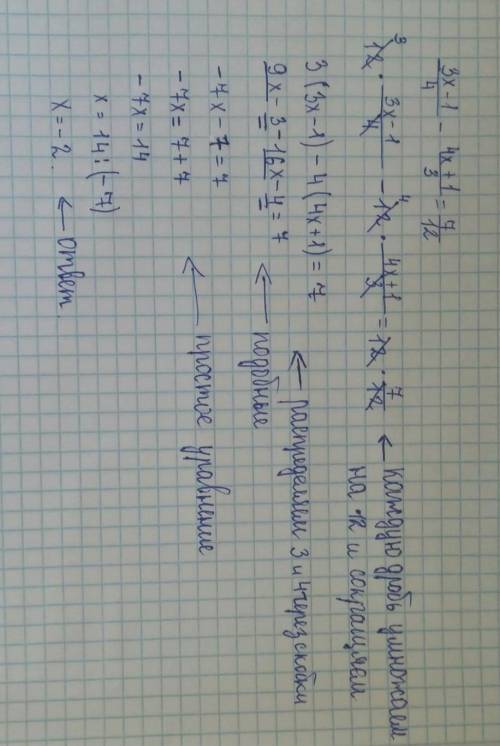 3x-1/4 - 4x+1/3 = 7/12
3 12 · 3x-1/4 - 4 12 · 4x+1/3 = 12 · 7/12 ← каждую дробь умножаем
на 12 и сокращаем
3(3x-1) - 4(4x+1) = 7 ← распределяем 3 и 4 через скобки
9x - 3 - 16x - 4 = 7 ← подобные
-7x - 7 = 7
-7x = 7+7 ← простое уравнение
-7x = 14
x = 14:(-7)
x = -2. ← ответ.